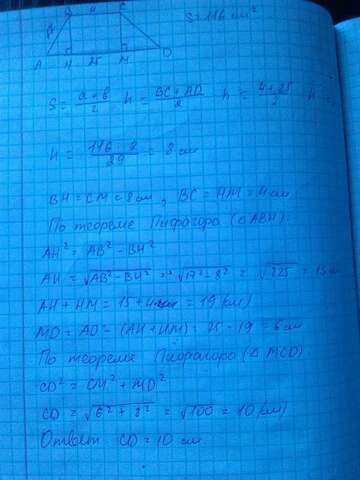 B 4 C S=116 см²
A H 25 M D
S = a+b/2 h = BC+AD/2 h = 4+25/2 h
h = 116·2/29 = 8 см
BH = CM = 8 см, BC = HM = 4 см
По теореме Пифагора (△ABH):
AH² = AB² - BH²
AH = √AB² - BH² = √17² - 8² = √225 = 15 см
AH + HM = 15 + 4 = 19 (см)
MD = AD - (AH + HM) = 25 - 19 = 6 см
По теореме Пифагора (△ MCD)
CD² = CM² + MD²
CD = √6² + 8² = √100 = 10 (см)
Ответ CD = 10 см.